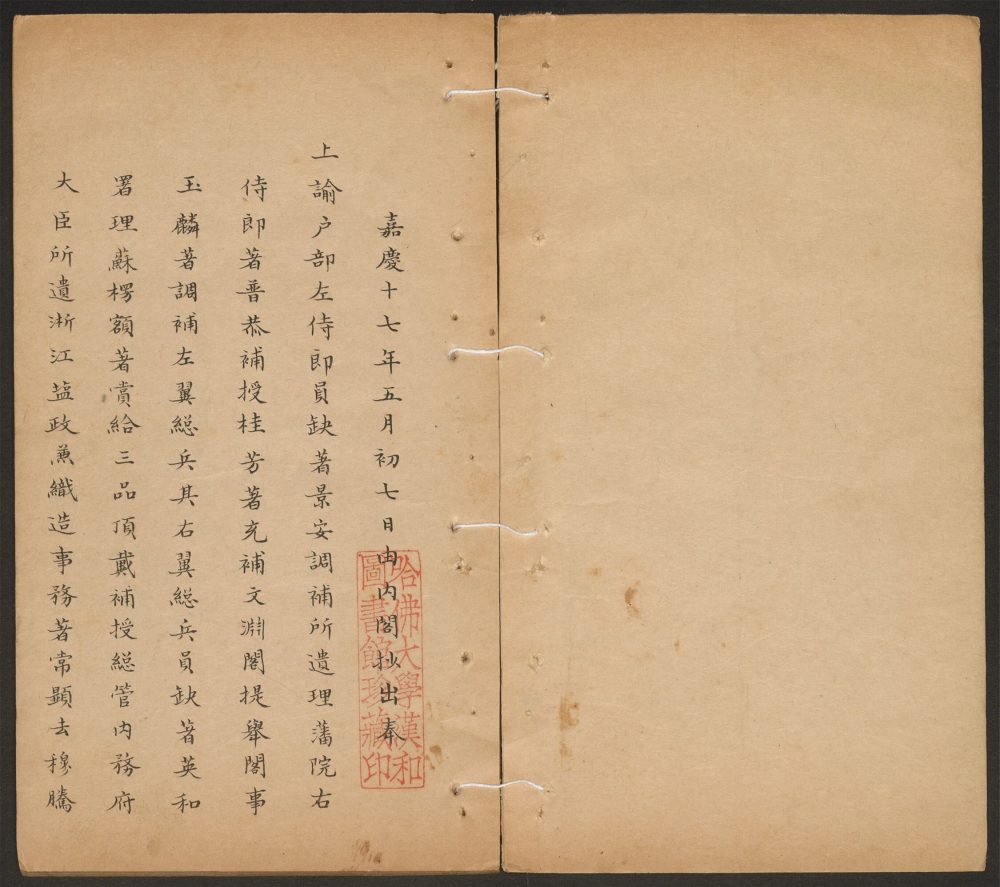 嘉慶十七年五月初七日由内閣抄出奉
上諭户部左侍郎員缺著景安調補所遺理藩院右
侍郎著普恭補授桂芳著充補文淵閣提舉閣事
玉麟著調補左翼総兵其右翼総兵員缺著英和
署理蘇楞額著賞給三品頂戴補授総管内務府
大臣所遺淅江塩政蒹織造事務著常顯去穆騰
哈佛大學漢和
圖書館珍藏印